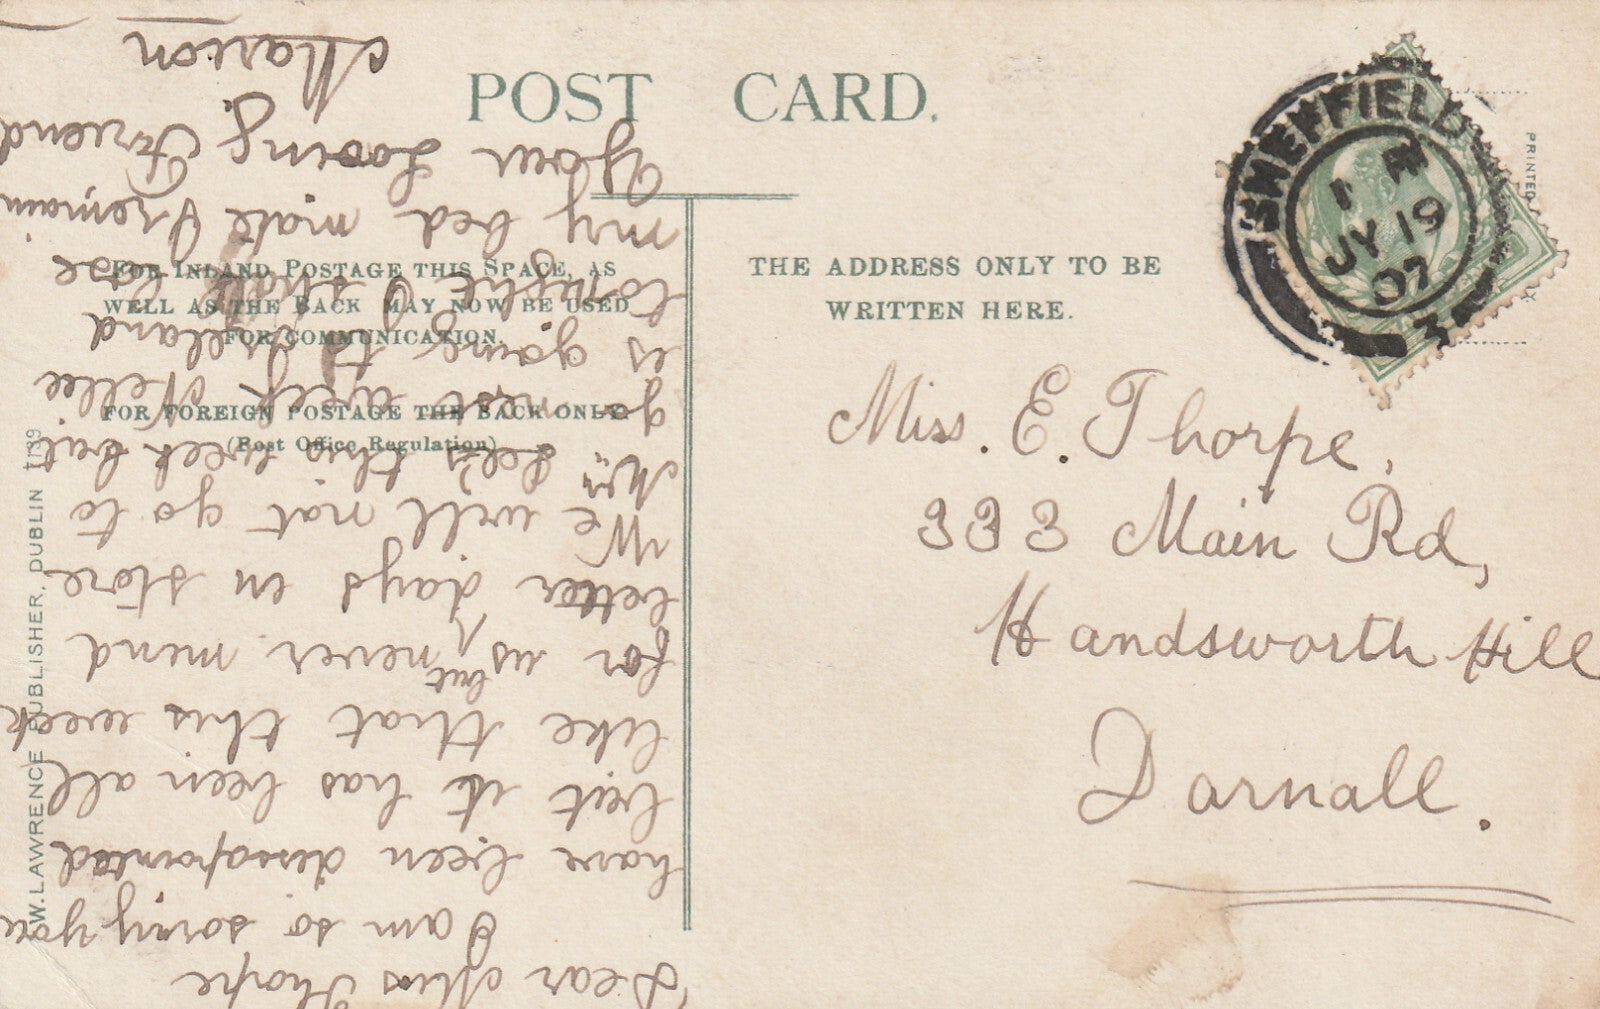 POST CARD.
FOR INLAND POSTAGE THIS SPACE, AS
WELL AS THE BACK MAY NOW BE USED
FOR COMMUNICATION.
FOR FOREIGN POSTAGE THE BACK ONLY.
(Post Office Regulation)
THE ADDRESS ONLY TO BE
WRITTEN HERE.
W. LAWRENCE PUBLISHER, DUBLIN 1139
PRINTED
SHEFFIELD
JY 19
07
3
Miss. E. Thorpe,
333 Main Rd,
Handsworth Hill
Darnall.
Dear Miss Thorpe
I am so sorry you
have been dissapointed
but it has been all
like that this week
for us, but never mind
better days in store.
We will not go to
Mrs Lee's this week but
go next week Nellie
is going to
tonight I shall
my bed make I remain
Your Loving Friend
Marion